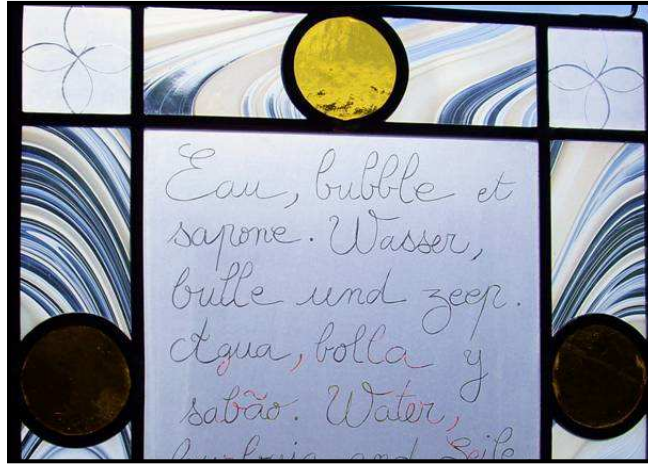 Eau, bubble et
sapone. Wasser,
bulle und zeep.
Agua, bolla y
sabão. Water,
burbuja and Seife